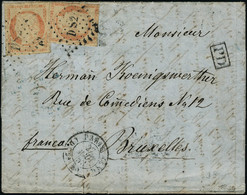 Monsieur
PD
Herman Koenigswerther
Rue de Comediens N° 12
franco
Bruxelles.